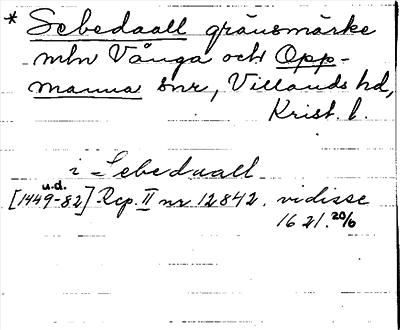 * Sebedaall gränsmärke
mln Vånga och Opp-
manna snr, Villands hd,
Krist. l.
i Sebedaall
u.d.
[1449-82] Rep. II nr 12842. vidisse
1621. 20/6